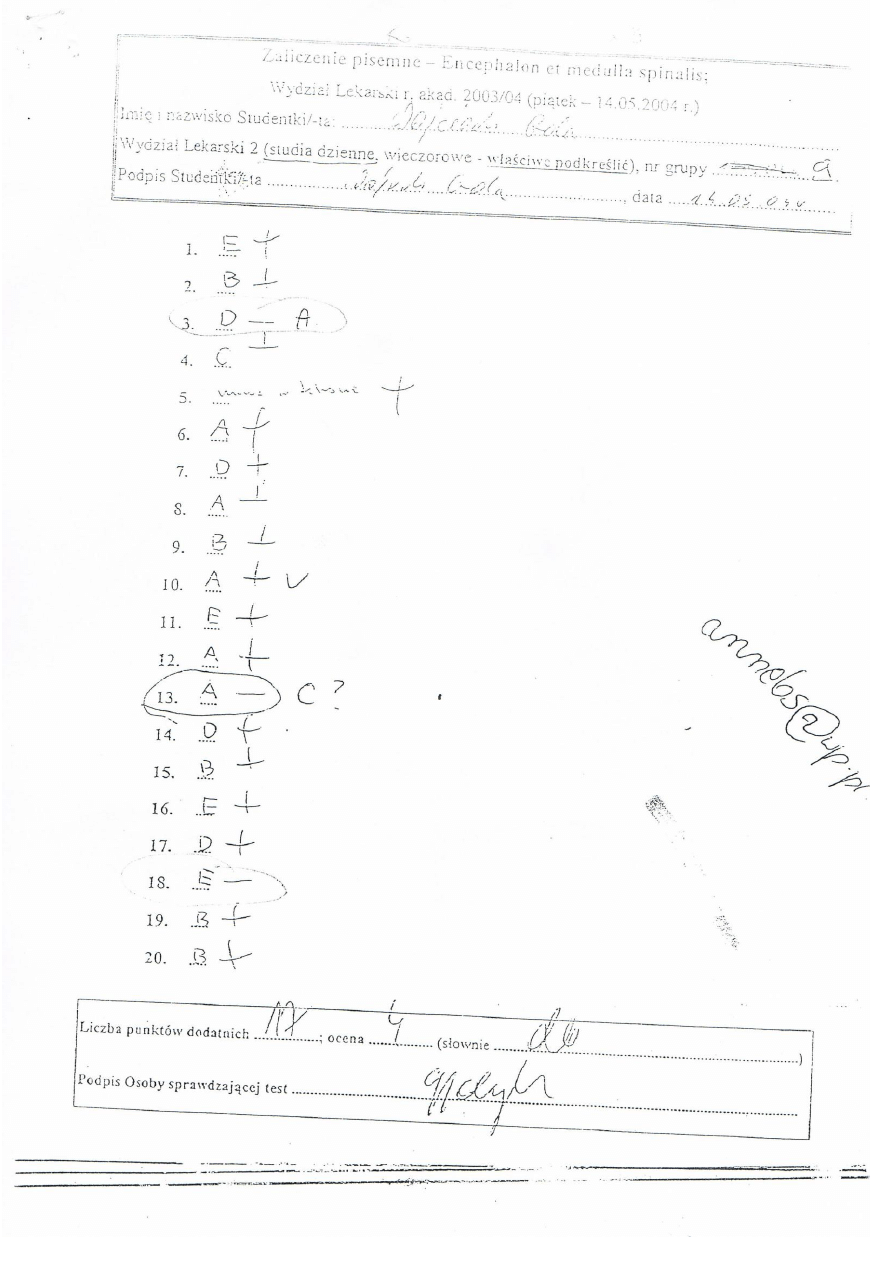 Zaliczenie pisemne – Encephalon et medulla spinalis;
Wydział Lekarski r. akad. 2003/04 (piątek – 14.05.2004 r.)
Imię i nazwisko Studentki/-ta:
Wydział Lekarski 2 (studia dzienne, wieczorowe - właściwe podkreślić), nr grupy 9
Podpis Studentki/-ta ............, data 14.05.04
1. E +
2. B +
3. D — A
4. C +
5. +
6. A +
7. D +
8. A +
9. B +
10. A + V
11. E +
12. A +
13. A — C ?
14. D +
15. B +
16. E +
17. D +
18. E —
19. B +
20. B +
Liczba punktów dodatnich 17; ocena 4 (słownie db)
Podpis Osoby sprawdzającej test